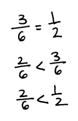 3/6 = 1/2
2/6 < 3/6
2/6 < 1/2